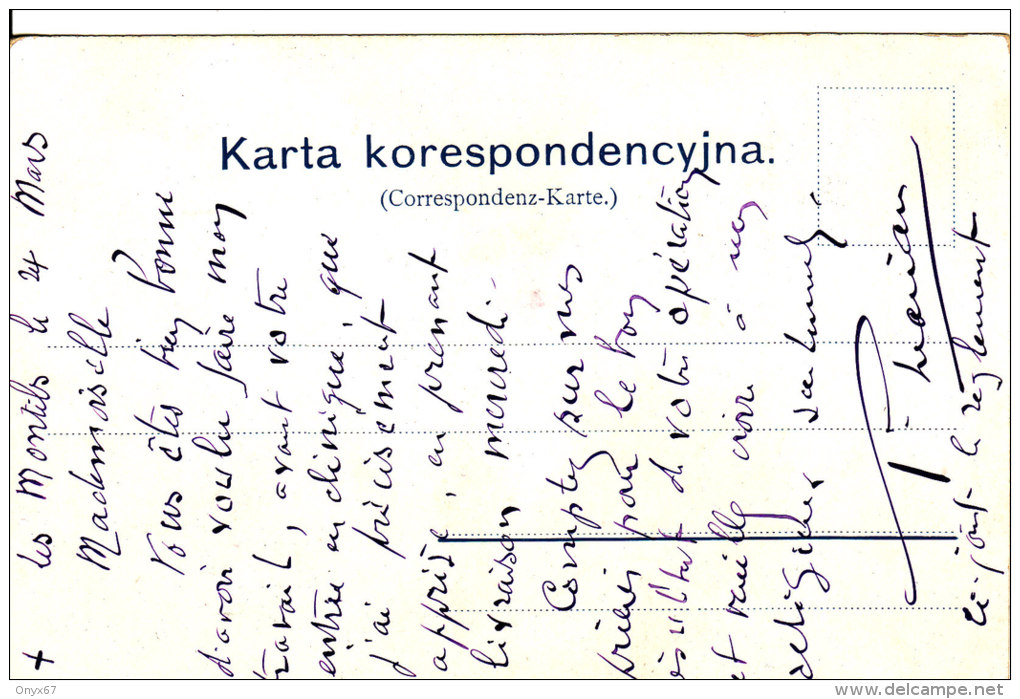 Karta korespondencyjna.
(Correspondenz-Karte.)
+ Les Montils le 24 Mars
Mademoiselle
Vous êtes bien bonne
d'avoir voulu faire mon
travail, avant votre
entrée en clinique, que
j'ai précisément
apprise, en prenant
livraison mercredi.
Comptez sur mes
prières pour le bon
résultat de votre opération
et veuillez croire à mes
religieux sentiments
ci-joint le règlement
Onyx67
www.delcampe.net